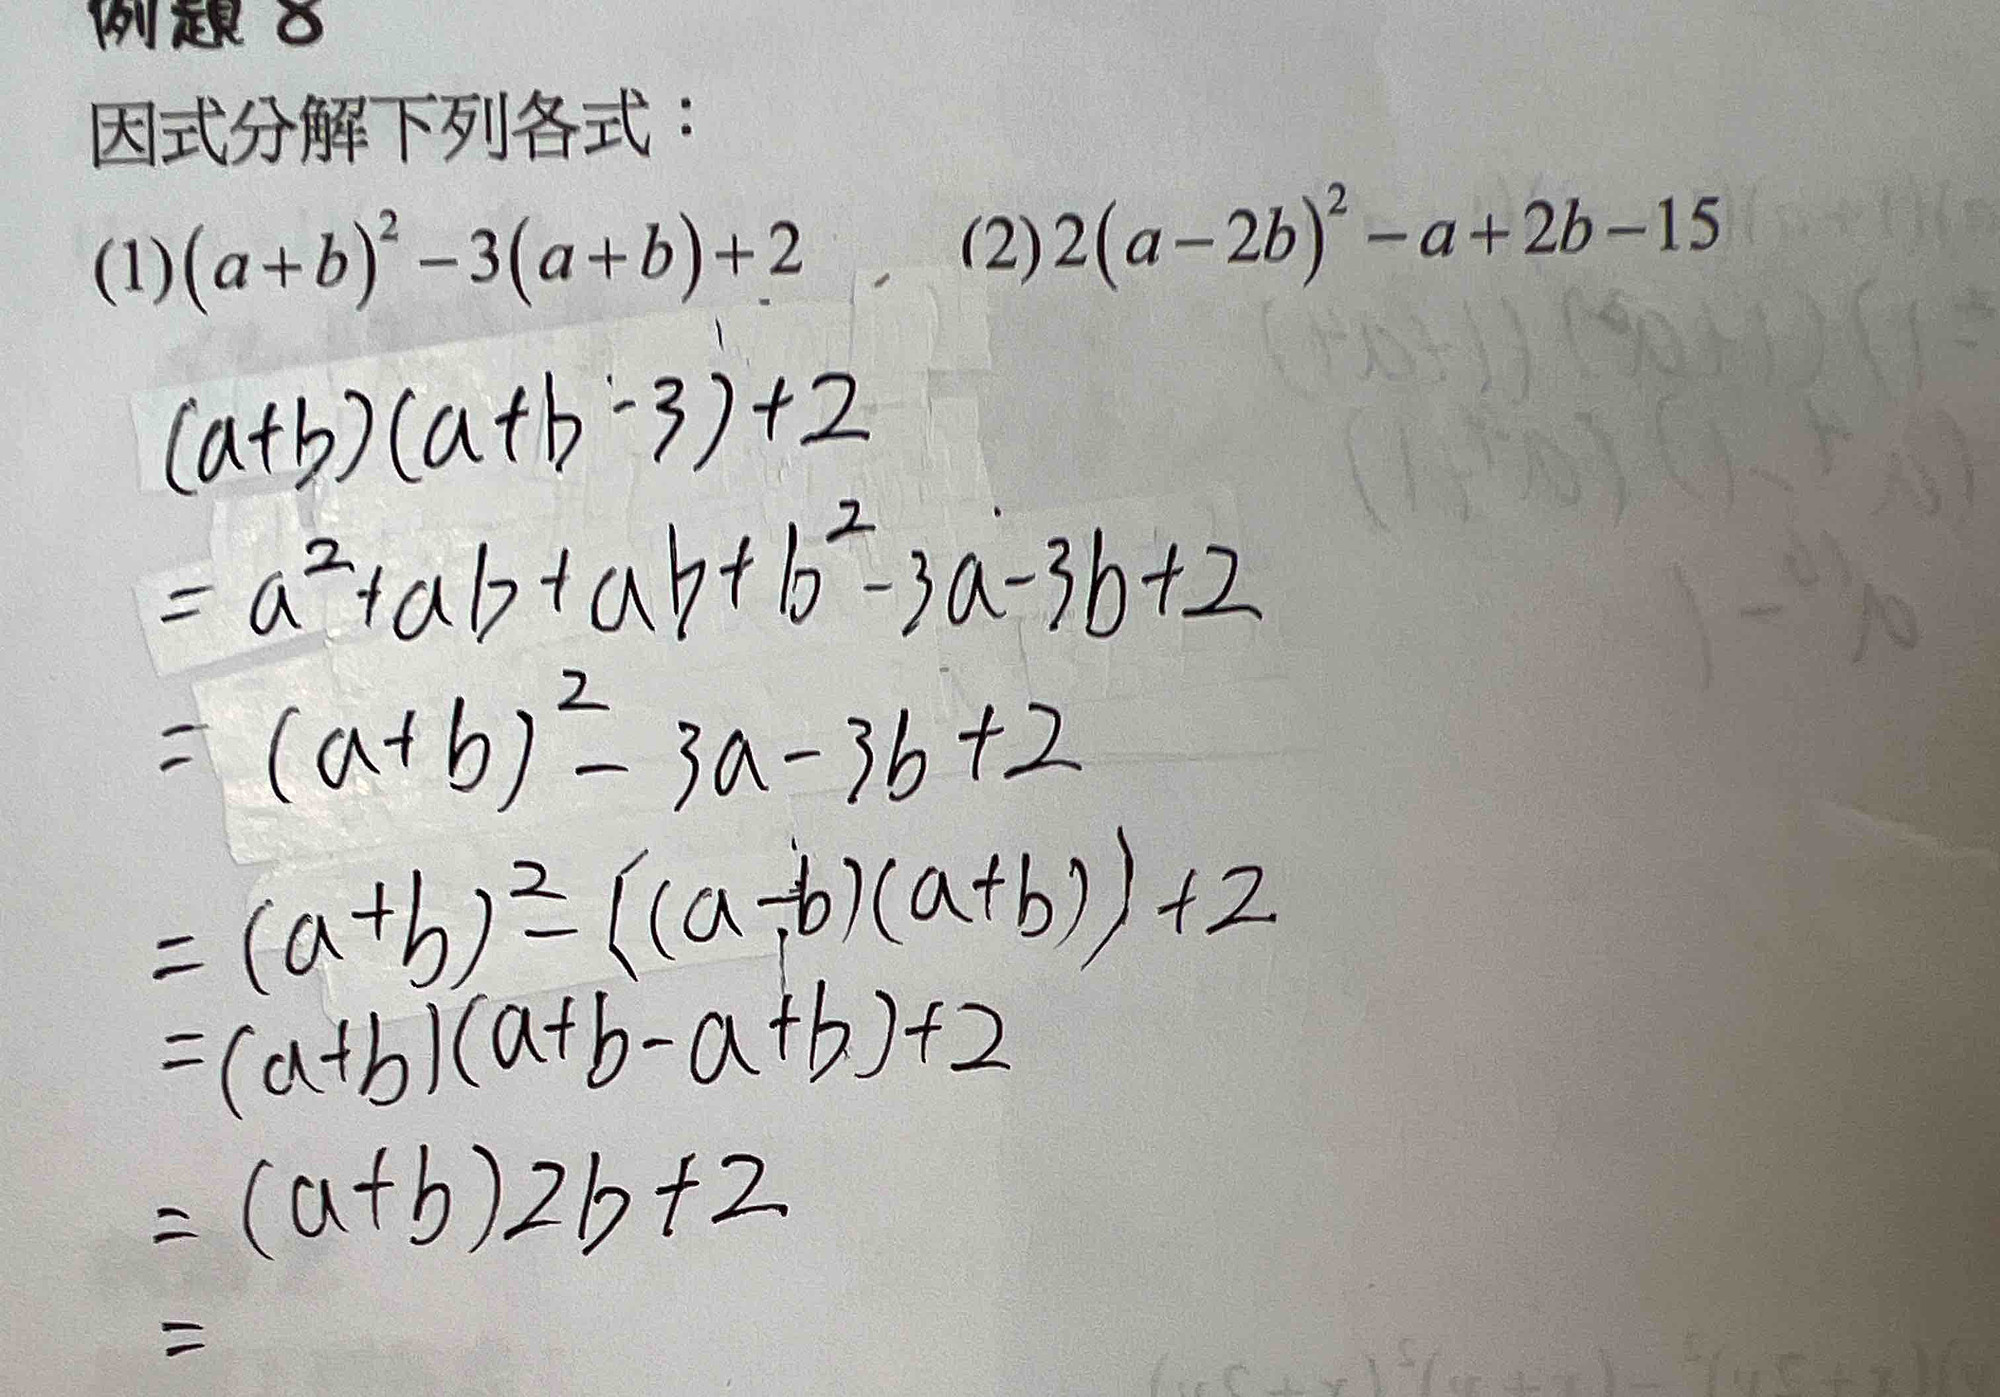 例題 8
因式分解下列各式：
(1)(a+b)²-3(a+b)+2 (2)2(a-2b)²-a+2b-15
(a+b)(a+b-3)+2
= a²+ab+ab+b²-3a-3b+2
= (a+b)²-3a-3b+2
= (a+b)²-((a-b)(a+b))+2
= (a+b)(a+b-a+b)+2
= (a+b)2b+2
=